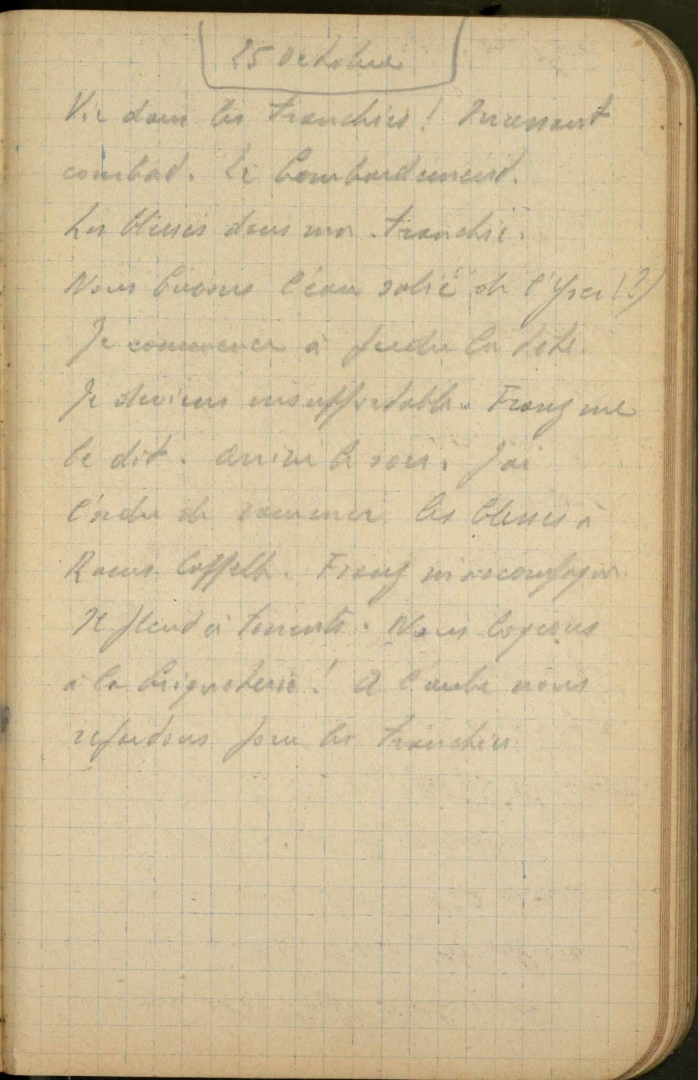 25 octobre
Vie dans les tranchées ! Incessant
combat. Le bombardement.
Les blessés dans ma tranchée.
Nous buvons l'eau salie de l'Yser (?)
Je commence à perdre la tête.
Je deviens insupportable. Franz me
le dit. Arrive le soir. J'ai
l'ordre de ramener les blessés à
Rams Cappelle. Franz m'accompagne.
Il pleut à torrents. Nous logeons
à la briqueterie ! A l'aube nous
repartons pour les tranchées